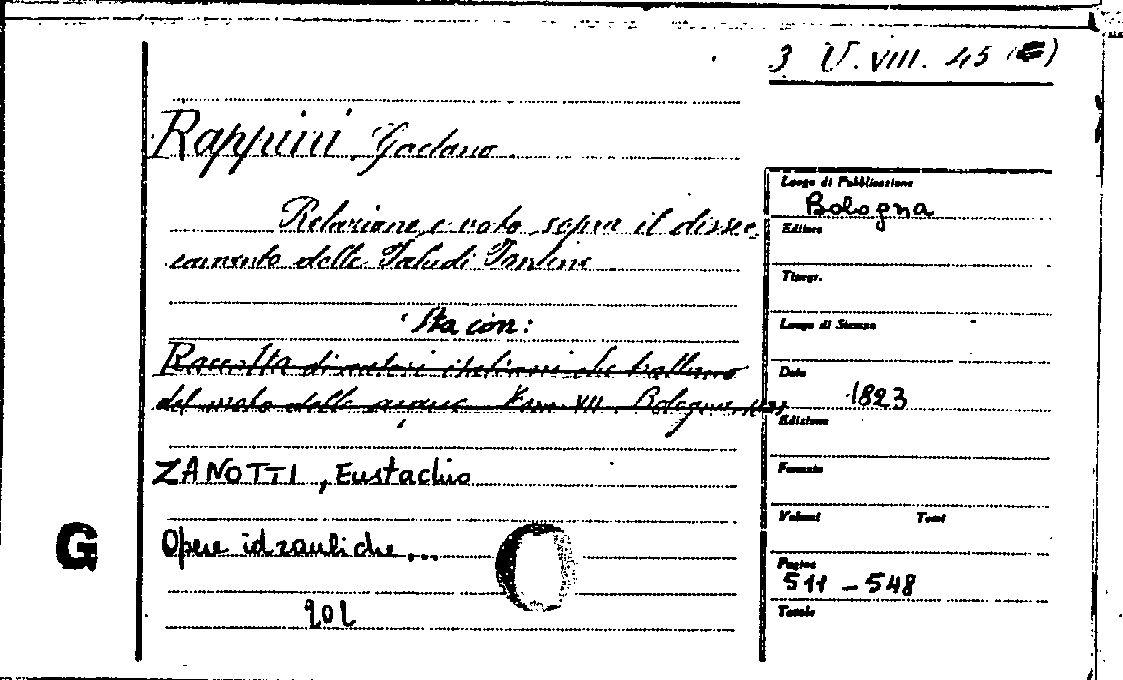 3 V. VIII. 45 (
Rappini Gaetano
Relazione e voto sopra il dissec-
camento delle Paludi Pontine
Sta con:
Raccolta di autori italiani che trattano
del moto delle acque Tom VII. Bologna
ZANOTTI, Eustachio
Opere idrauliche...
G
202
Luogo di Pubblicazione
Bologna
Editore
Tipogr.
Luogo di Stampa
Data
1823
Edizione
Formato
Volumi Tomi
Pagine
511 - 548
Tavole